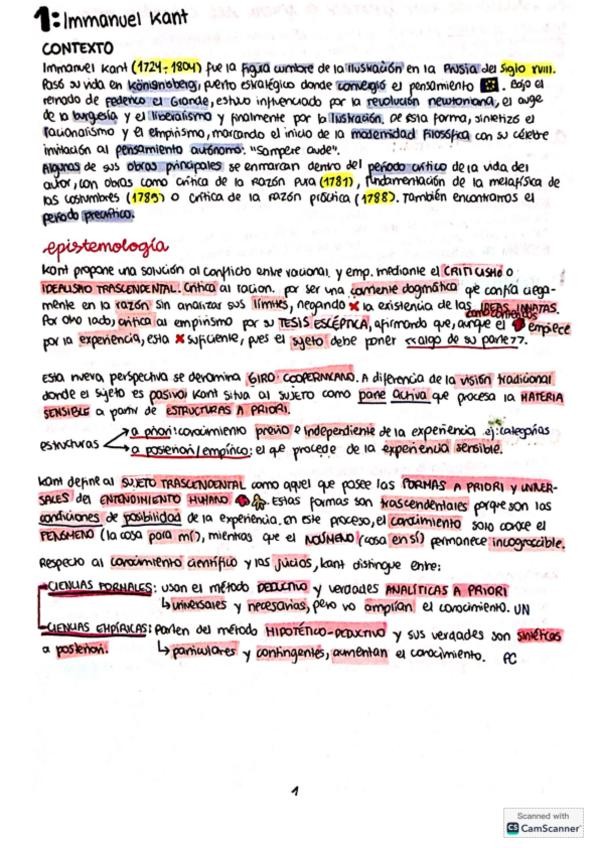 1: Immanuel Kant
CONTEXTO
Immanuel Kant (1724-1804) fue la figura cumbre de la Ilustración en la Prusia del Siglo XVIII.
Pasó su vida en Königsberg, puerto estratégico donde convergió el pensamiento. Bajo el
reinado de Federico el Grande, estuvo influenciado por la revolución newtoniana, el auge
de la burgesía y el liberalismo y finalmente por la Ilustración. De esta forma, sintetizó el
racionalismo y el empirismo, marcando el inicio de la modernidad filosófica con su célebre
invitación al pensamiento autónomo: "Sampere aude".
Algunas de sus obras principales se enmarcan dentro del período crítico de la vida del
autor, con obras como crítica de la razón pura (1781), fundamentación de la metafísica de
las costumbres (1785) o crítica de la razón práctica (1788). También encontramos el
período precrítico.
epistemología
Kant propone una solución al conflicto entre racional. y emp. mediante el CRITICISMO o
IDEALISMO TRASCENDENTAL. Critica al racion. por ser una corriente dogmática que confía ciega-
mente en la razón sin analizar sus límites, negando la existencia de las IDEAS INNATAS.
Por otro lado, critica al empirismo por su TESIS ESCÉPTICA, afirmando que, aunque el conocimiento empiece
por la experiencia, esta suficiente, pues el sujeto debe poner <<algo de su parte>>.
Esta nueva perspectiva se denomina GIRO COOPERNICANO. A diferencia de la visión tradicional
donde el sujeto es pasivo, Kant sitúa al SUJETO como parte activa que procesa la MATERIA
SENSIBLE a partir de ESTRUCTURAS A PRIORI.
a priori: conocimiento previo e independiente de la experiencia ej: categorías
estructuras
a posteriori/empírico: el que procede de la experiencia sensible.
Kant define al SUJETO TRASCENDENTAL como aquel que posee las FORMAS A PRIORI y UNIVER-
SALES del ENTENDIMIENTO HUMANO. Estas formas son trascendentales porque son las
condiciones de posibilidad de la experiencia. En este proceso, el conocimiento solo conoce el
FENÓMENO (la cosa para mí), mientras que el NOÚMENO (cosa en sí) permanece incognoscible.
Respecto al conocimiento científico y los juicios, Kant distingue entre:
CIENCIAS FORMALES: usan el método DEDUCTIVO y verdades ANALÍTICAS A PRIORI
universales y necesarias, pero no amplían el conocimiento. UN
CIENCIAS EMPÍRICAS: parten del método HIPOTÉTICO-DEDUCTIVO y sus verdades son sintéticas
a posteriori. particulares y contingentes, aumentan el conocimiento. PC
1
Scanned with
CS CamScanner